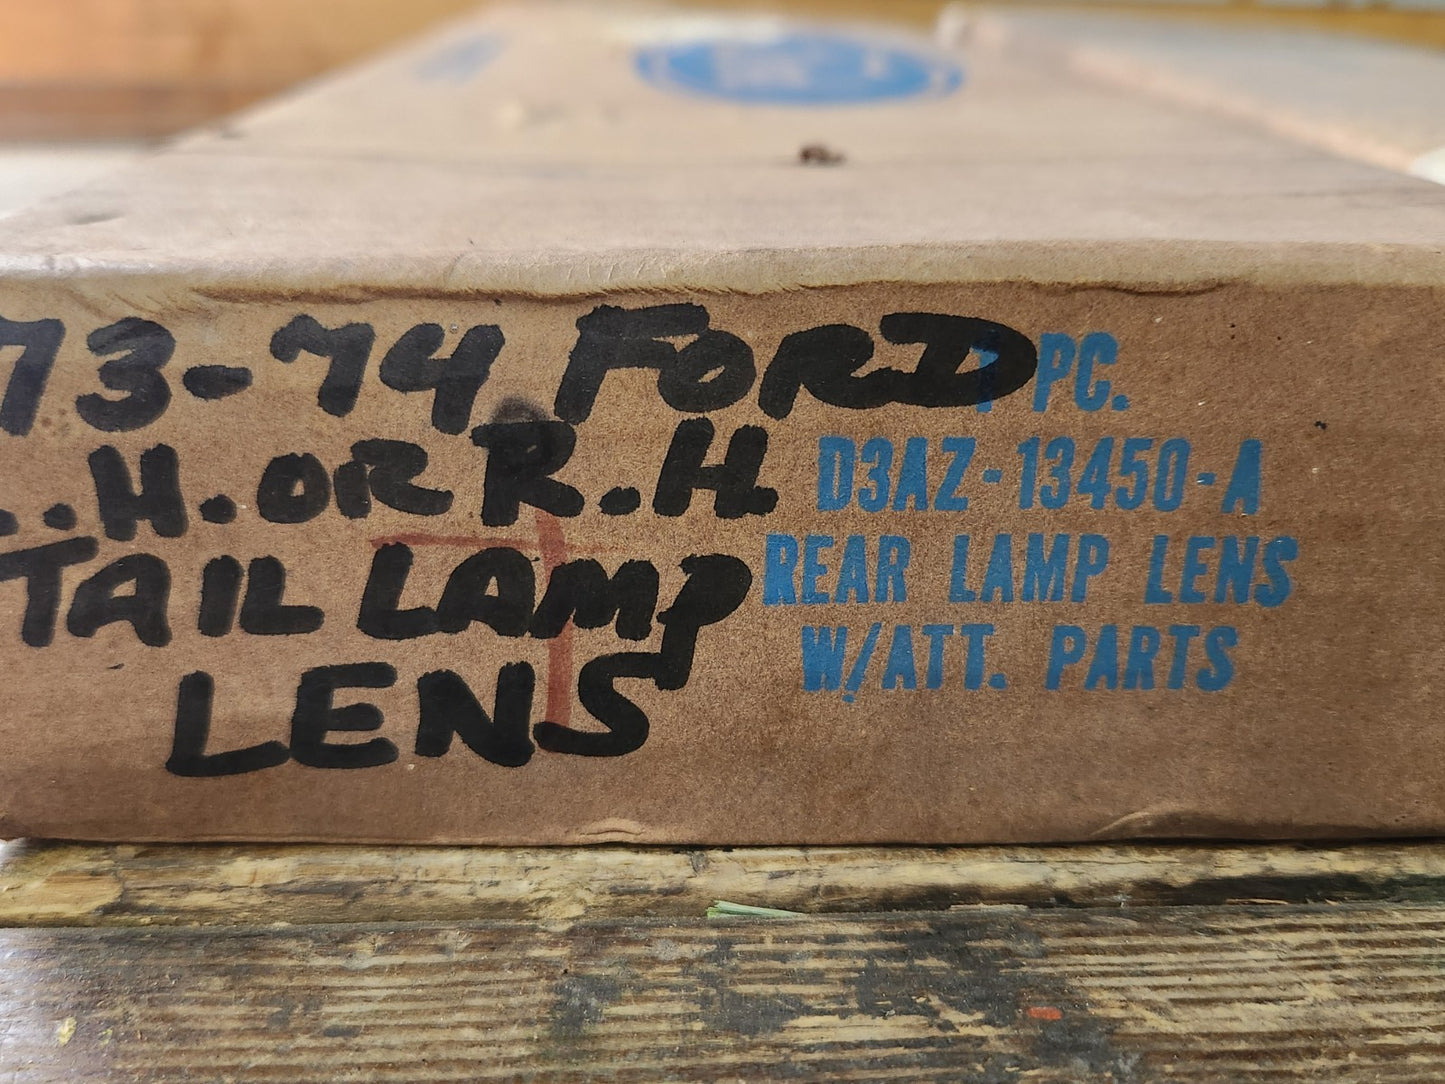 73-74 FORD
L.H. OR R.H.
TAIL LAMP
LENS
1 PC.
D3AZ-13450-A
REAR LAMP LENS
W/ATT. PARTS